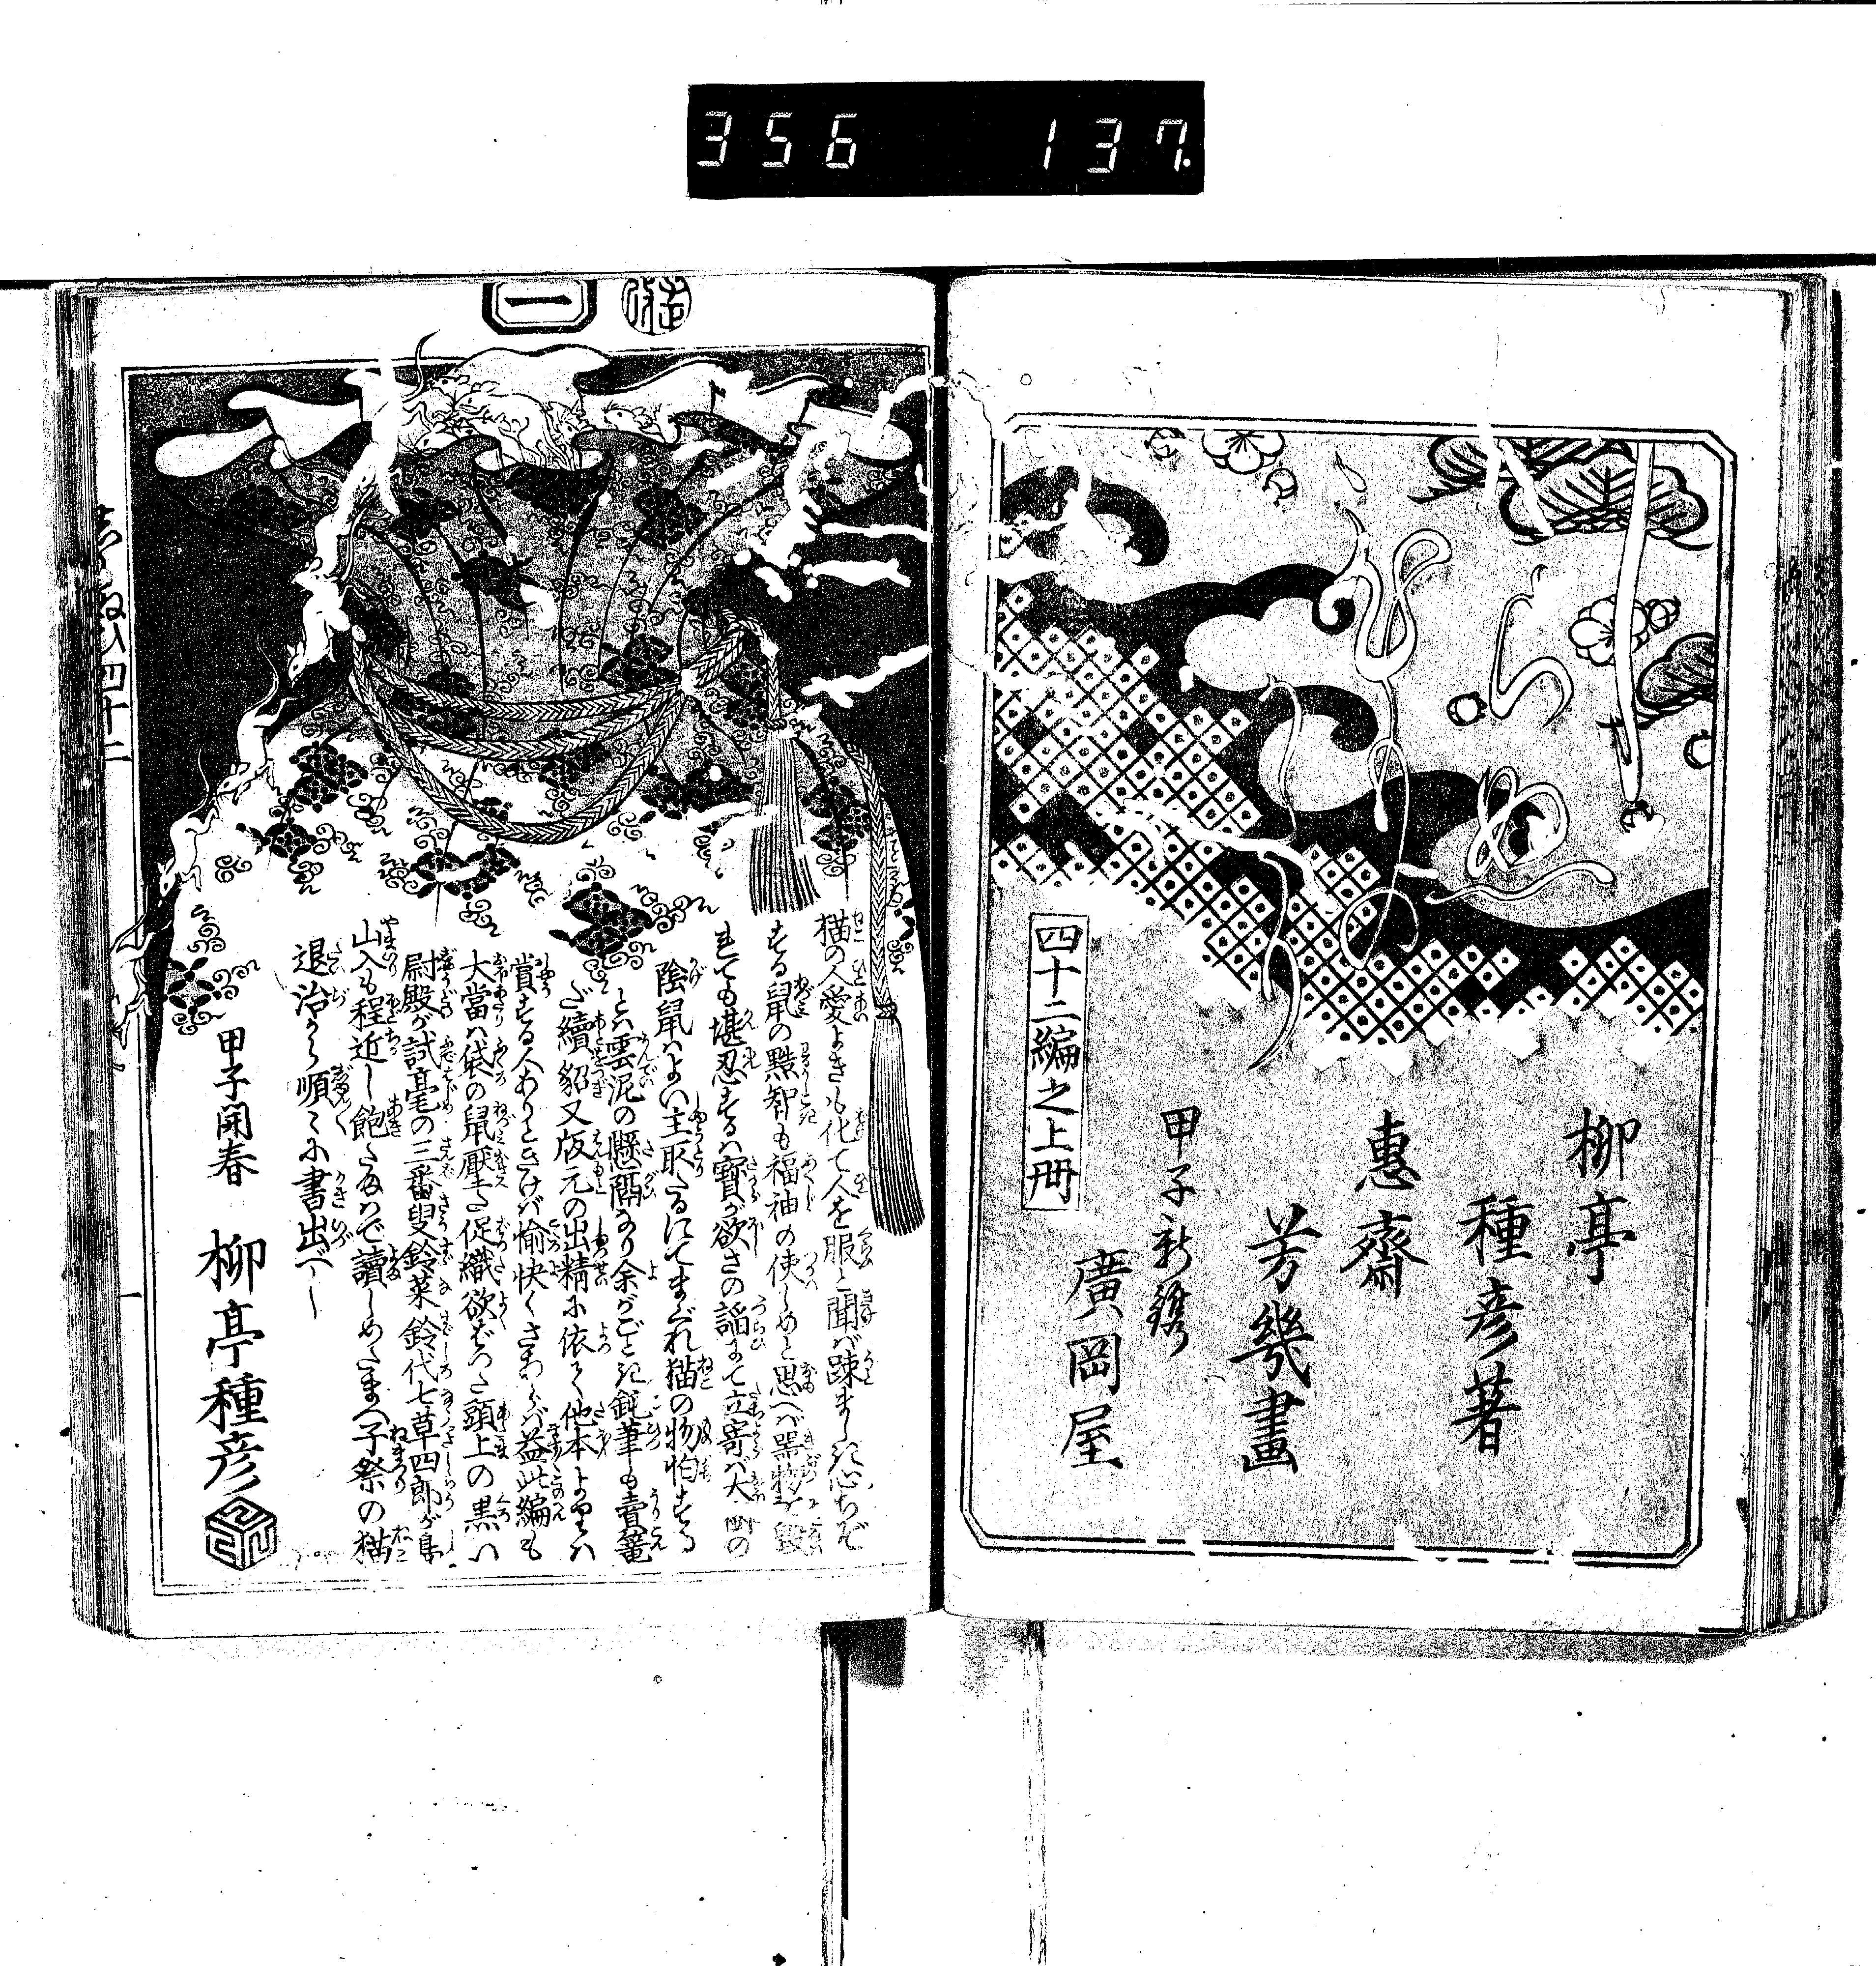 356 137
しらぬひ
柳亭
種彦著
惠齋
芳幾畫
甲子新鐫
廣岡屋
四十二編之上册
一
猫の人愛よきも化て人を服と聞バ疎ましき心ちぞ
する鼠の黠智も福神の使しめと思へバ器物を毀
れても堪忍するハ寳が欲さの謡にて立寄バ大
陰鼠ハよい主取たるにてまぐれ猫の物怕する
とハ雲泥の懸隔あり余がごとき鈍筆も賣鼈
ど續貂又版元の出精に依て他本よりハ
賞する人ありときけバ愉快くさわらバ益此編も
大當ハ袋の鼠壓た促織欲ばつた頭上の黒い
尉殿が試毫の三番叟鈴菜鈴代七草四郎が島
山入も程近し飽たまハで讀しめたまへ子祭の猫
退治から順々に書出べし
甲子開春
柳亭種彦
しらぬひ四十二
一